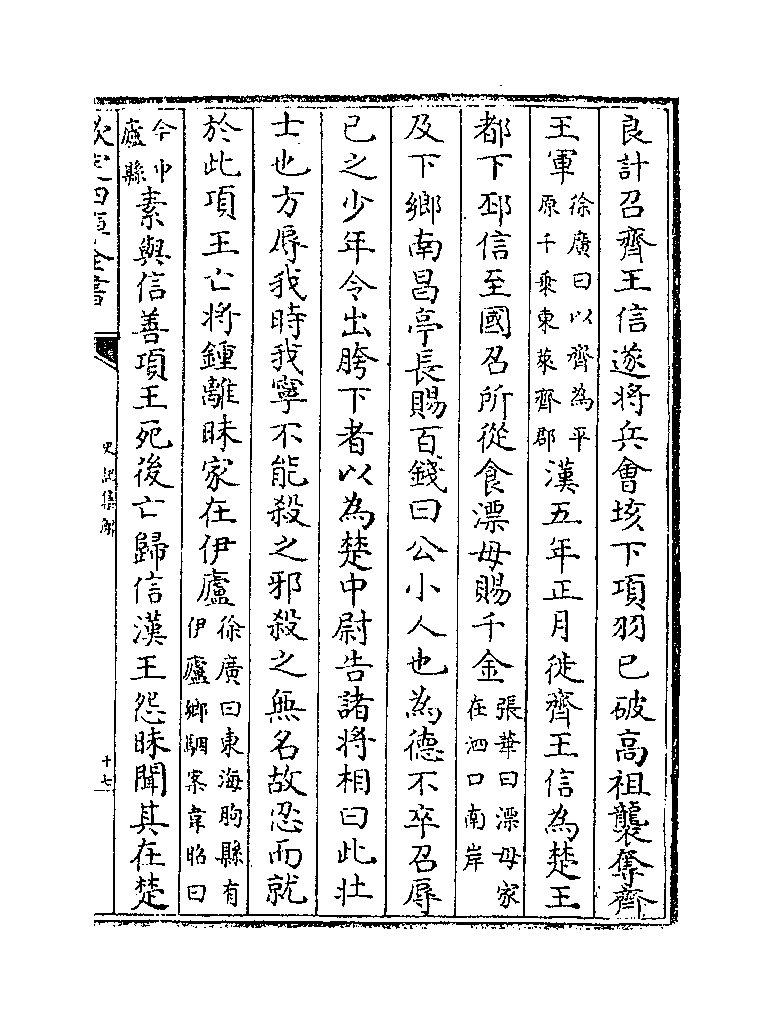 良計召齊王信遂將兵會垓下項羽已破高祖襲奪齊
王軍徐廣曰以齊為平原千乗東萊齊郡漢五年正月徙齊王信為楚王
都下邳信至國召所從食漂母賜千金張華曰漂母家在泗口南岸
及下鄉南昌亭長賜百錢曰公小人也為德不卒召辱
已之少年令出胯下者以為楚中尉告諸將相曰此壮
士也方辱我時我寧不能殺之邪殺之無名故忍而就
於此項王亡將鍾離昧家在伊廬徐廣曰東海朐縣有伊廬鄉駰案韋昭曰
今中廬縣素與信善項王死後亡歸信漢王怨昧聞其在楚
欽定四庫全書
史記集解
十七